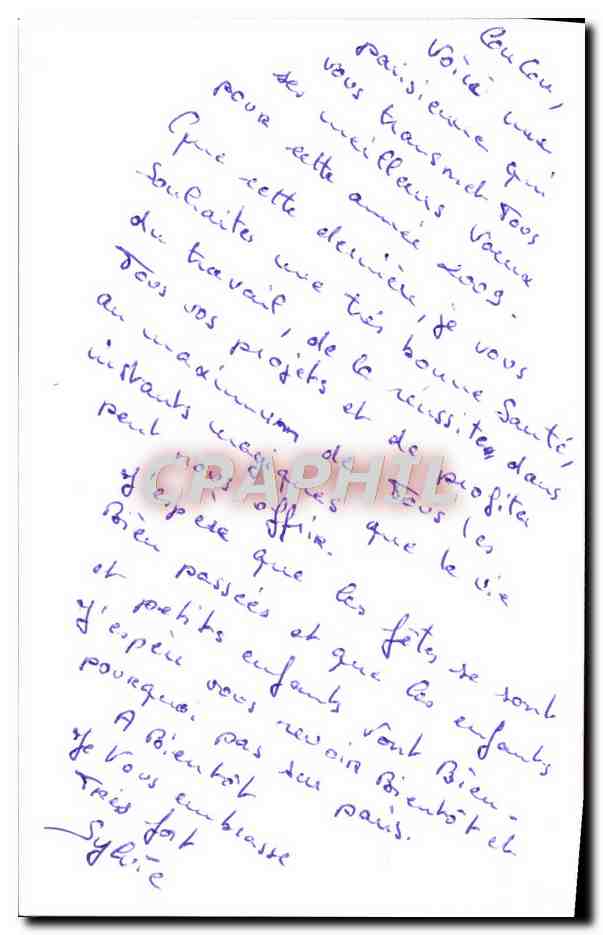 Coucou,
Voici une
parisienne qui
vous transmet Tous
ses meilleurs Vœux
pour cette année 2009.
Que cette dernière, je vous
Souhaites une très bonne Santé,
du travail, de la réussite, dans
Tous vos projets et de profiter
au maximum de Tous les
instants magiques que la vie
peut nous offrir.
J'espère que les fêtes se sont
Bien passées et que les enfants
et petits enfants vont Bien.
J'espère vous revoir Bientôt et
pourquoi pas sur paris.
A Bientôt
Je Vous embrasse
Très fort
Sylvie
CPAPHIL